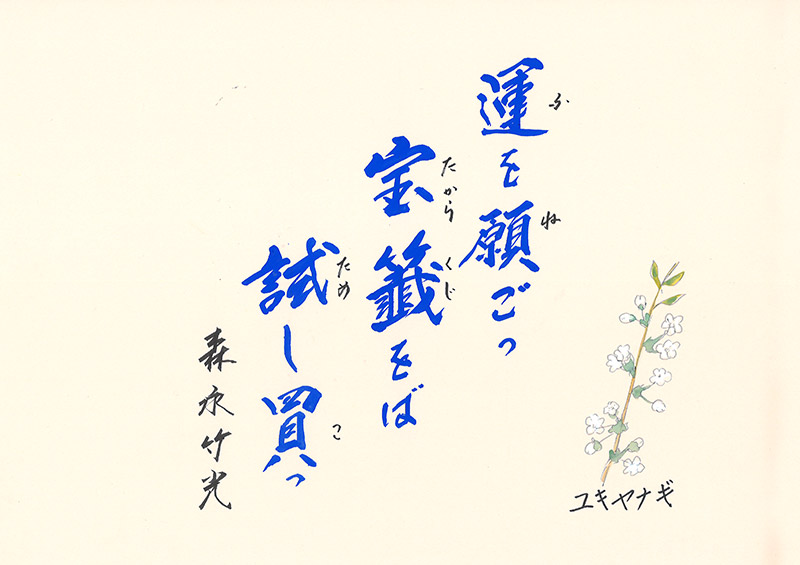 運を願ごつ
ふ
ね
宝籤をば
たから
くじ
試し買つ
ため
こ
森永竹光
ユキヤナギ